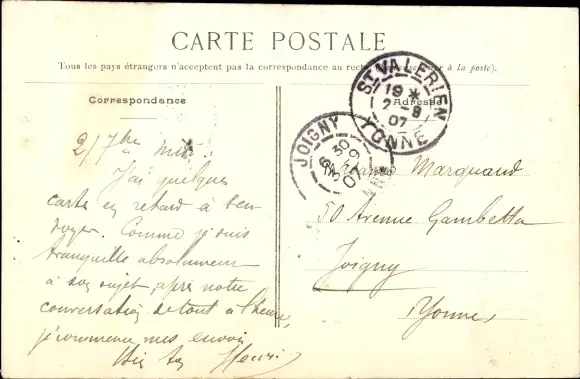 CARTE POSTALE
Tous les pays étrangers n'acceptent pas la correspondance au recto à la poste).
Correspondance
Adresse
ST VALERIEN
19 *
2-9
07
YONNE
JOIGNY
30
07
2/7bre
J'ai quelques
cartes en retard à t'en
voyer. Comme je suis
tranquille absolument
à son sujet après notre
conversation de tout à l'heure,
je commence mes envois
Henri
Marquand
50 Avenue Gambetta
Joigny
Yonne